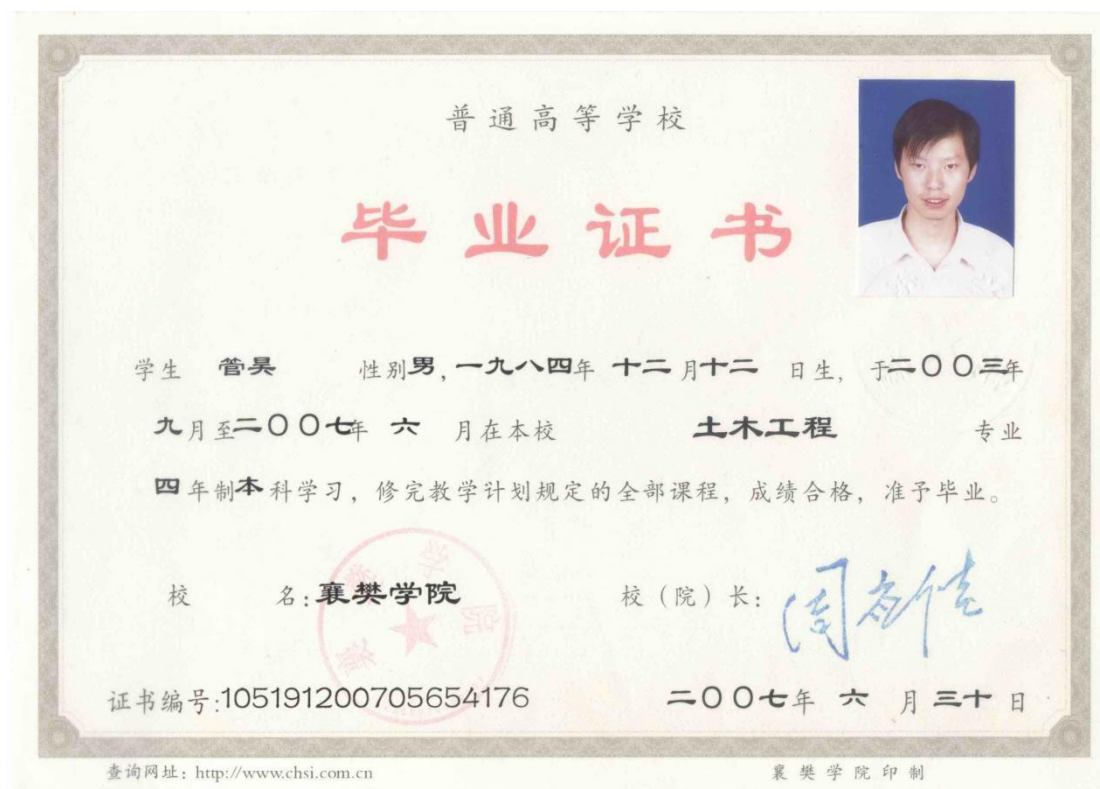 普通高等学校
毕业证书
学生 管昊 性别男，一九八四年 十二月十二 日生，于二〇〇三年
九月至二〇〇七年 六 月在本校 土木工程 专业
四年制本科学习，修完教学计划规定的全部课程，成绩合格，准予毕业。
校 名：襄樊学院 校（院）长：
证书编号:105191200705654176 二〇〇七年 六 月 三十 日
查询网址：http://www.chsi.com.cn 襄樊学院印制